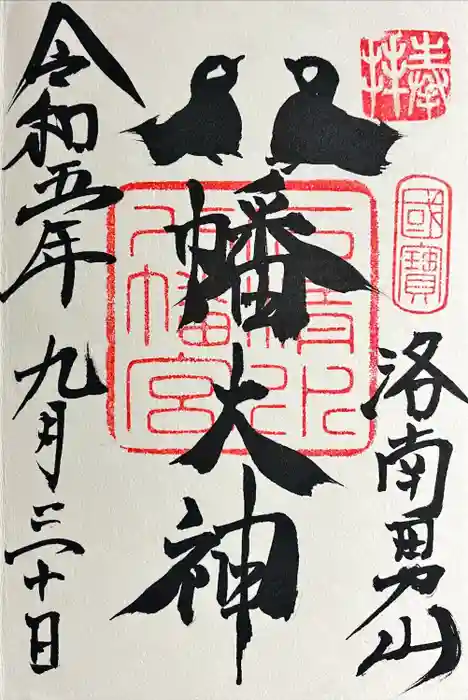 奉拝
國寶
洛南男山
八幡大神
石清水
八幡宮
令和五年九月三十日